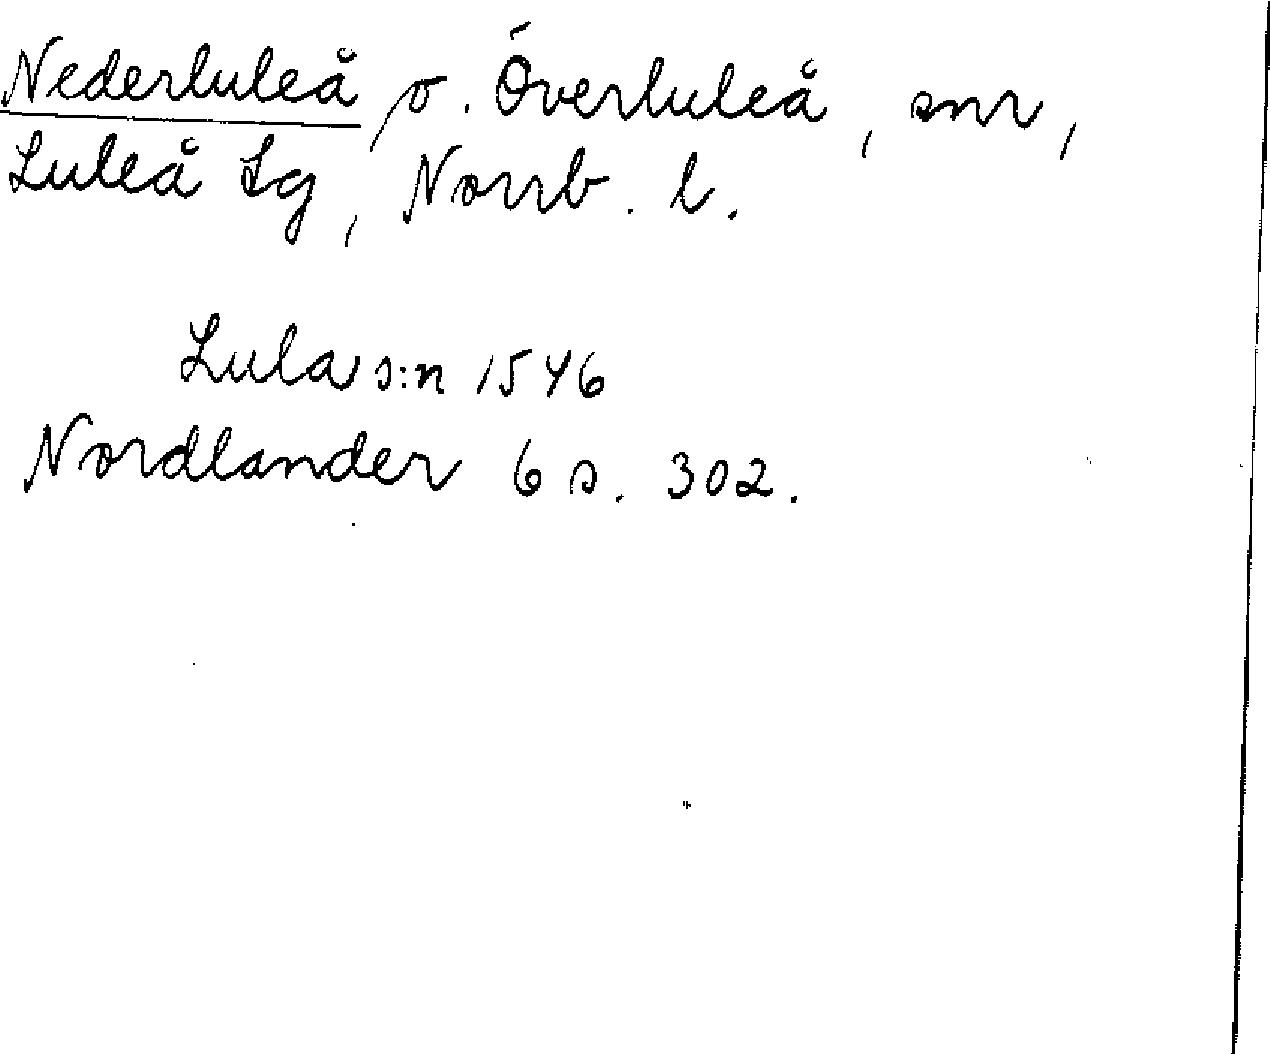 Nederluleå o. Överluleå, snr,
Luleå Lg, Norrb. l.
Lula s:n 1546
Nordlander 6 s. 302.